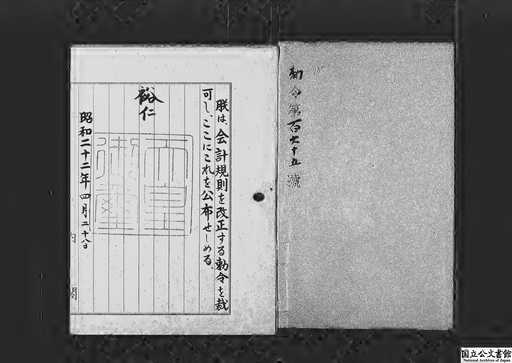 勅令第百六十五號
朕は、会計規則を改正する勅令を裁
可し、ここにこれを公布せしめる。
裕仁
天皇
御璽
昭和二十二年四月二十八日
内閣
国立公文書館
National Archives of Japan